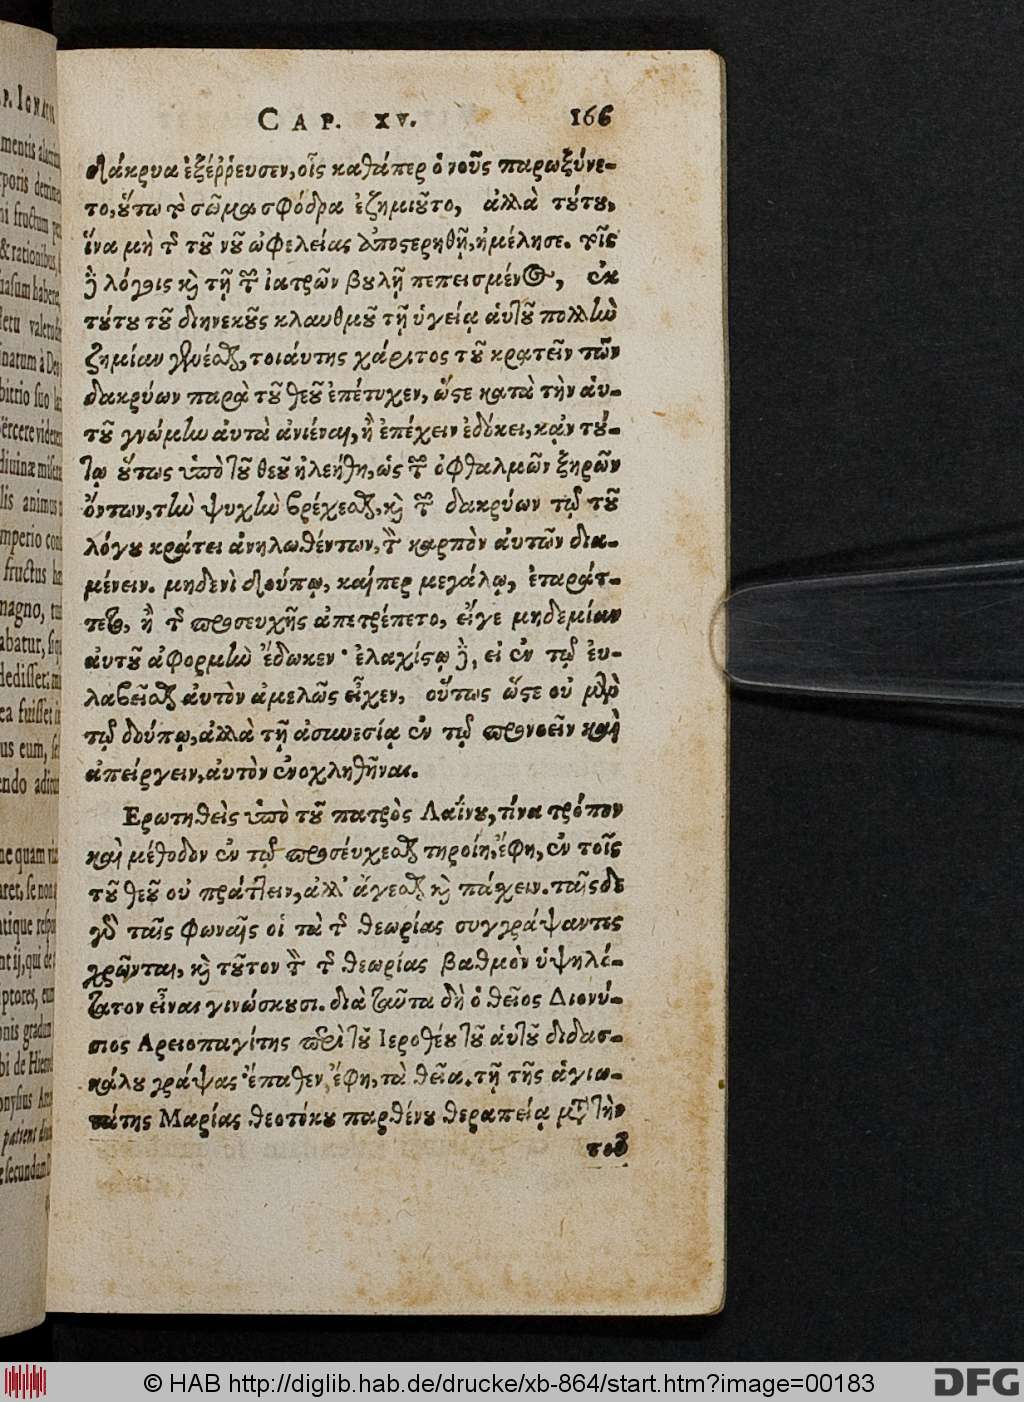 CAP. XV. 166
δάκρυα ἐξέῤῥευσεν, οἷς καθάπερ ὁ νοῦς παρωξύνε-
το, οὕτω τὸ σῶμα σφόδρα ἐζημιοῦτο, ἀλλὰ τούτου,
ἵνα μὴ τῆς τοῦ νοῦ ὠφελείας ἀποστερηθῇ, ἠμέλησε. τοῖς
δὲ λόγοις καὶ τῇ τῶν ἰατρῶν βουλῇ πεπεισμένος, ἐκ
τούτου τοῦ διηνεκοῦς κλαυθμοῦ τῇ ὑγείᾳ αὑτοῦ πολλὴν
ζημίαν γενέσθαι, τοιαύτης χάριτος τοῦ κρατεῖν τῶν
δακρύων παρὰ τοῦ θεοῦ ἐπέτυχεν, ὥστε κατὰ τὴν αὑ-
τοῦ γνώμην αὐτὰ ἀνιέναι, ἢ ἐπέχειν ἐδόκει, κᾀν τού-
τῳ οὕτως ὑπὸ τοῦ θεοῦ ἠλεήθη, ὡς τῶν ὀφθαλμῶν ξηρῶν
ὄντων, τὴν ψυχὴν βρέχεσθαι, καὶ τῶν δακρύων τῷ τοῦ
λόγου κράτει ἀνηλωθέντων, τὸν καρπὸν αὐτῶν δια-
μένειν. μηδενὶ δούπῳ, καίπερ μεγάλῳ, ἐταράτ-
τετο, ἢ τῆς προσευχῆς ἀπετρέπετο, εἴγε μηδεμίαν
αὐτοῦ ἀφορμὴν ἔδωκεν· ἐλαχίστῳ δὲ, εἰ ἐν τῷ εὐ-
λαβεῖσθαι αὐτὸν ἀμελῶς εἶχεν, οὕτως ὥστε οὐ μὲν
τῷ δούπῳ, ἀλλὰ τῇ ἀσυνεσίᾳ ἐν τῷ προνοεῖν καὶ
ἀπείργειν, αὐτὸν ἐνοχληθῆναι.
Ερωτηθεὶς ὑπὸ τοῦ πατρὸς Λαΐνου, τίνα τρόπον
καὶ μέθοδον ἐν τῷ προσεύχεσθαι τηροίη, ἔφη, ἐν τοῖς
τοῦ θεοῦ οὐ πράττειν, ἀλλ' ἄγεσθαι καὶ πάσχειν. ταῖσδε
γὰρ ταῖς φωναῖς οἱ τὰ τῆς θεωρίας συγγράψαντες
χρῶνται, καὶ τοῦτον τὸν τῆς θεωρίας βαθμὸν ὑψηλό-
τατον εἶναι γινώσκουσι. διὰ ταῦτα δὴ ὁ θεῖος Διονύ-
σιος Αρειοπαγίτης περὶ τοῦ Ιεροθέου τοῦ αὑτοῦ διδασ-
κάλου γράψας· ἔπαθεν, ἔφη, τὰ θεῖα. τῇ τῆς ἁγιω-
τάτης Μαρίας θεοτόκου παρθένου θεραπείᾳ μετὰ τὴν
τοῦ
© HAB http://diglib.hab.de/drucke/xb-864/start.htm?image=00183
DFG